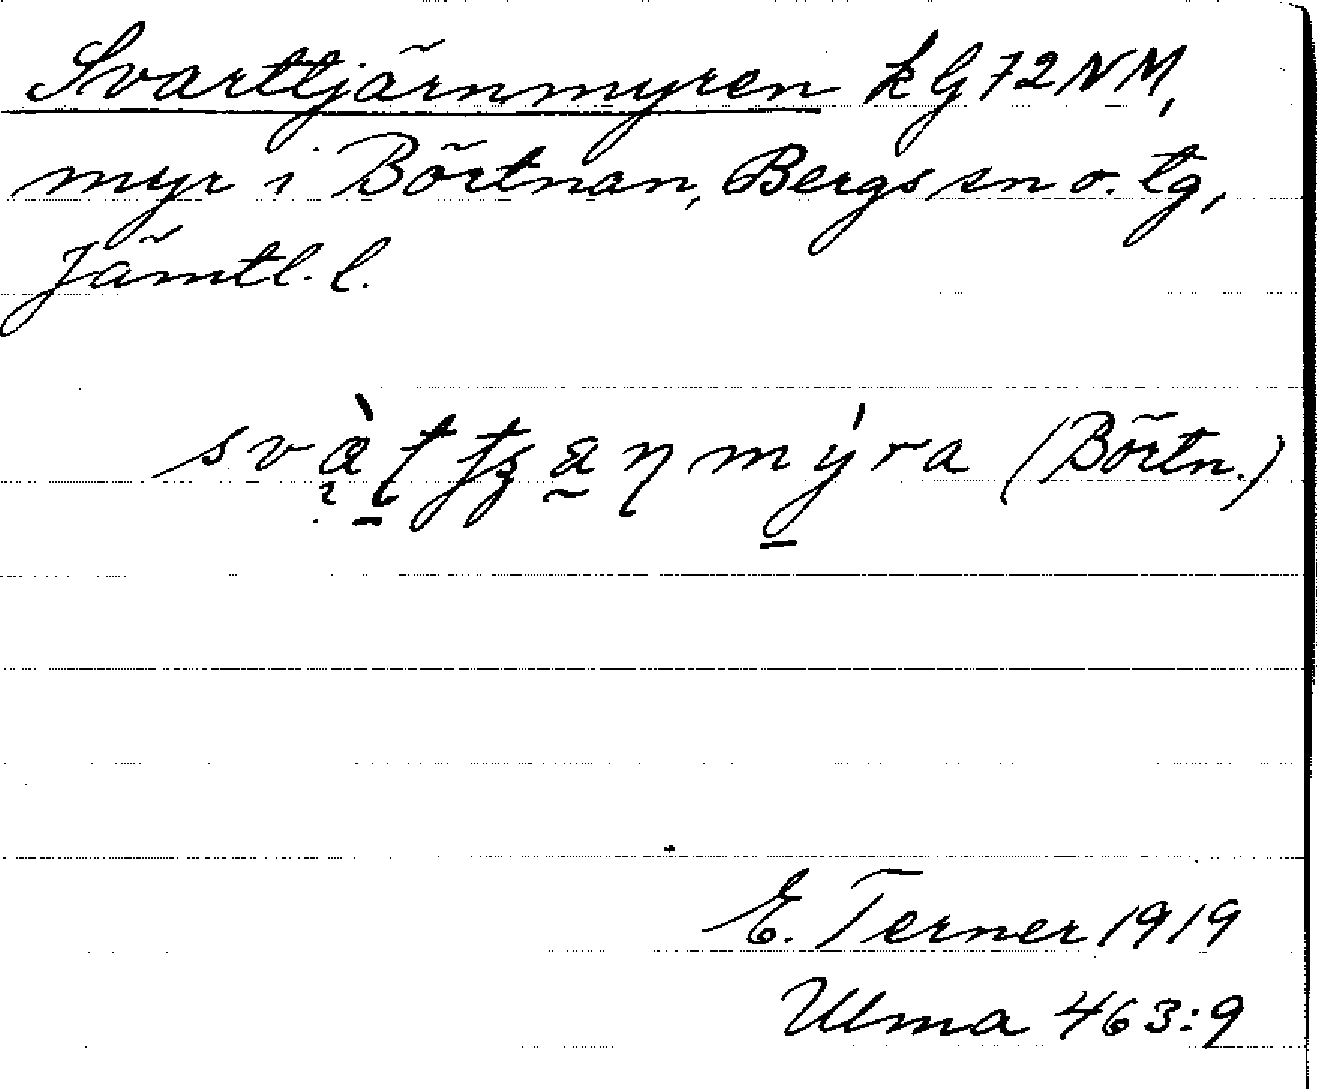 Svarttjärnmyren k G 72 NM,
myr i Börtnan, Bergs sn o. tg,
Jämtl. l.
(Börtn.)
E. Terner 1919
Ulma 463:9